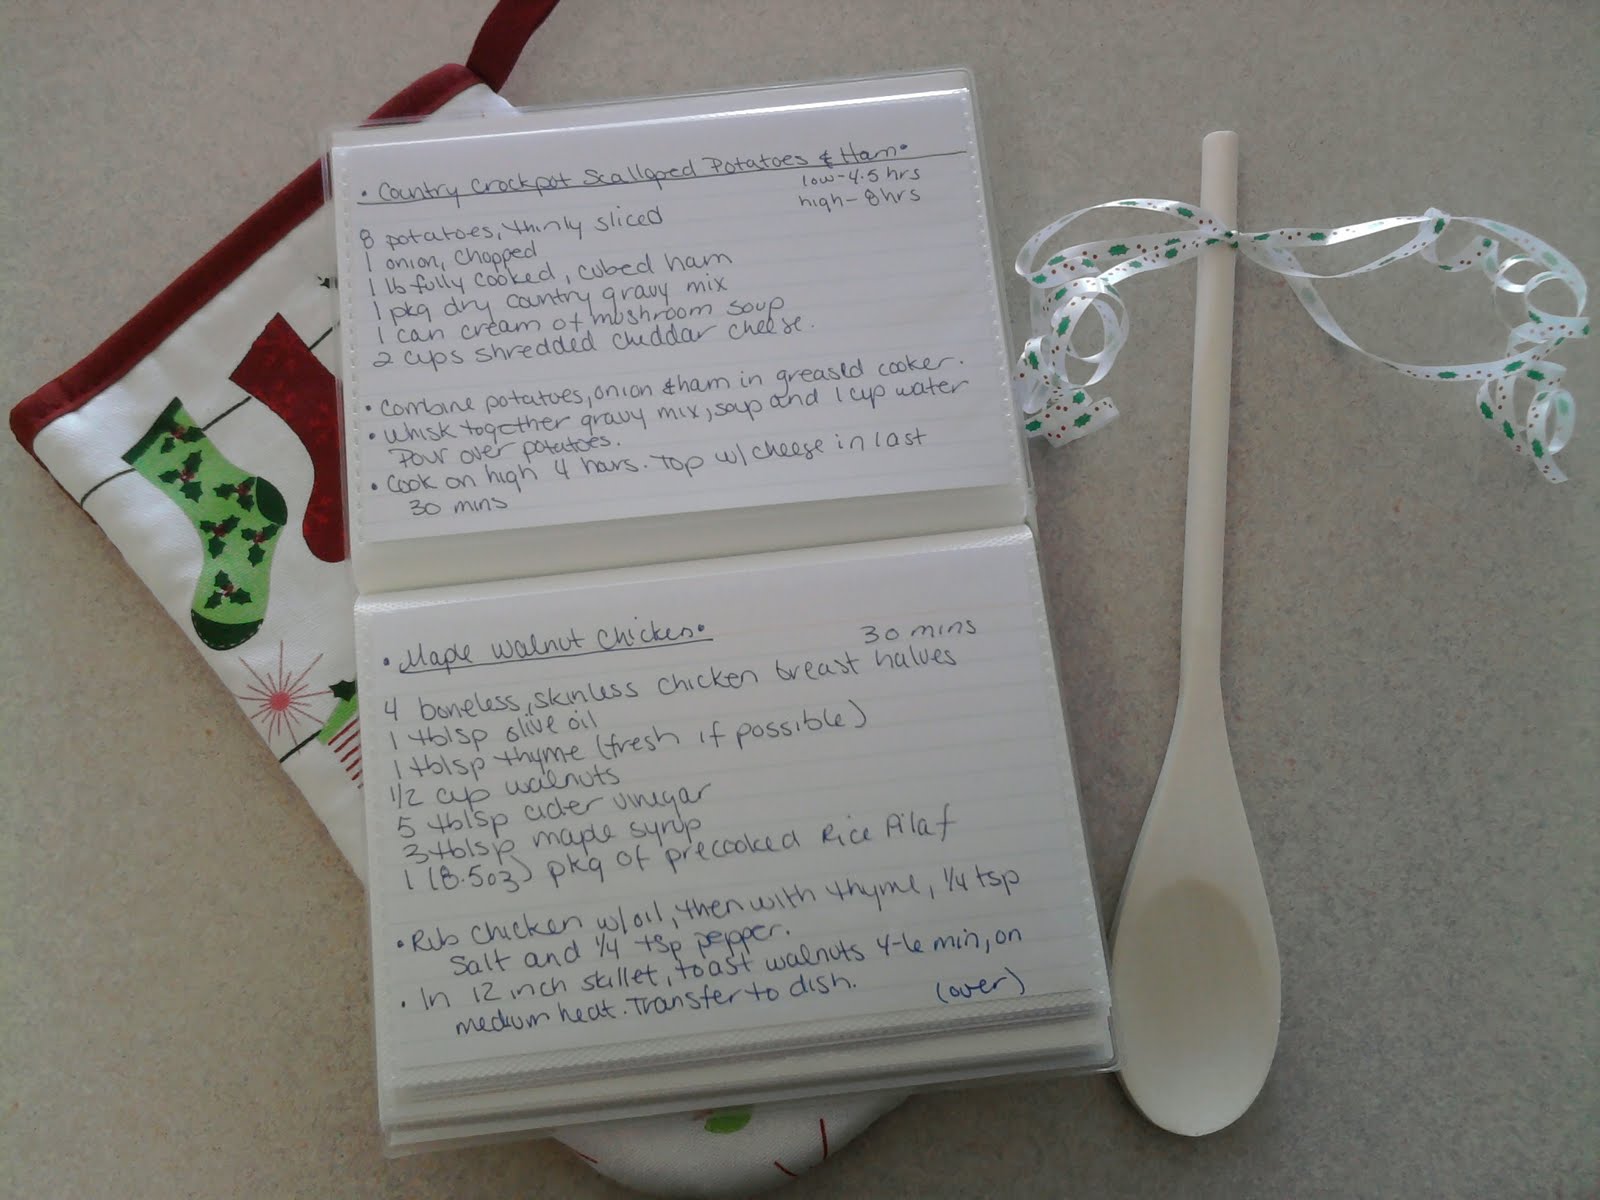 • Country Crockpot Scalloped Potatoes & Ham •
low - 4.5 hrs
high - 8 hrs
8 potatoes, thinly sliced
1 onion, chopped
1 lb fully cooked, cubed ham
1 pkg dry country gravy mix
1 can cream of mushroom soup
2 cups shredded cheddar cheese.
• Combine potatoes, onion & ham in greased cooker.
• Whisk together gravy mix, soup and 1 cup water
Pour over potatoes.
• Cook on high 4 hours. Top w/ cheese in last
30 mins
• Maple Walnut Chicken •
30 mins
4 boneless, skinless chicken breast halves
1 tblsp olive oil
1 tblsp thyme (fresh if possible)
1/2 cup walnuts
5 tblsp cider vinegar
3 tblsp maple syrup
1 (8.5oz) pkg of precooked Rice Pilaf
• Rub chicken w/ oil, then with thyme, 1/4 tsp
salt and 1/4 tsp pepper.
• In 12 inch skillet, toast walnuts 4-6 min, on
medium heat. Transfer to dish.
(over)